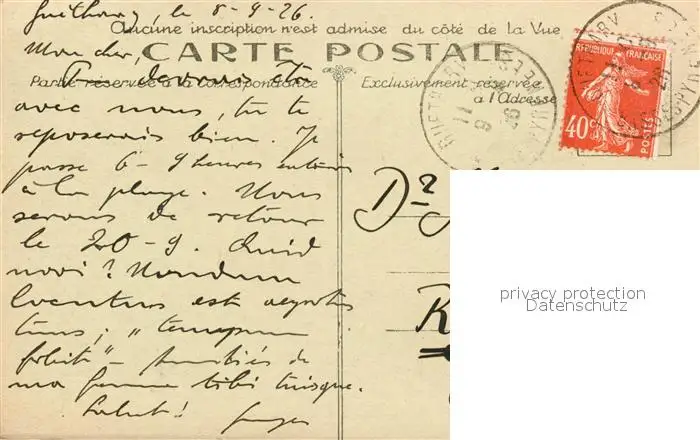 Guéthary, le 8-9-26.
Aucune inscription n'est admise du côté de la Vue
CARTE POSTALE
Partie réservée à la correspondance
Exclusivement réservée
à l'Adresse
Mon cher,
Tu devrais être
avec nous, tu te
reposerais bien. Je
passe 6-9 heures entières
à la plage. Nous
serons de retour
le 20-9. Quid
novi? Nondum
ventus est
tuus; "
" - Amitiés de
ma femme tibi tuisque.
Salut!
Dr
R
REPUBLIQUE FRANÇAISE
40c
POSTES
GUETHARY
11
9
26
privacy protection
Datenschutz